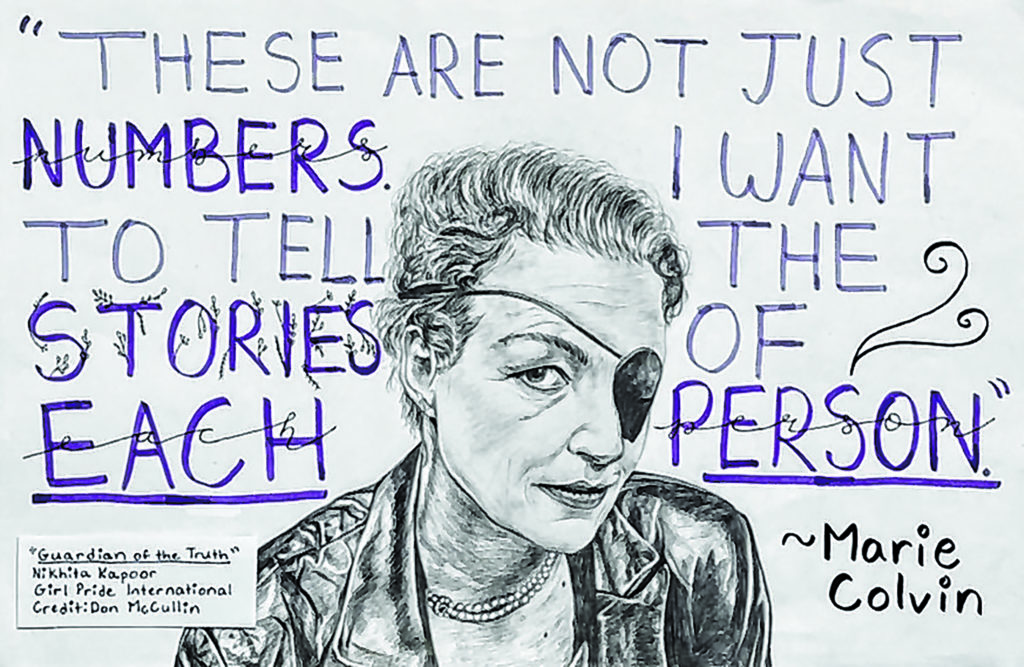 “THESE ARE NOT JUST
NUMBERS. I WANT
numbers
TO TELL THE
STORIES OF
EACH PERSON.”
each person
~Marie
Colvin
"Guardian of the Truth"
Nikhita Kapoor
Girl Pride International
Credit: Don McCullin